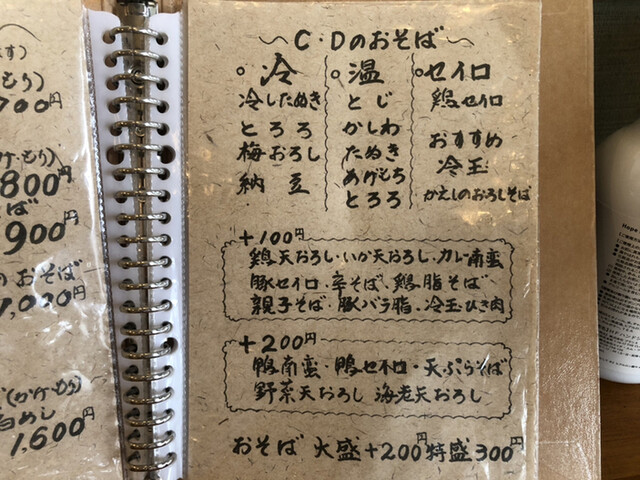 す)
もり)
700円
(かけ・もり)
800円
ば
900円
の おそば
(かけ・もり)
白めし
1,600円
～C・Dのおそば～
○冷
冷したぬき
とろろ
梅おろし
納豆
○温
とじ
かしわ
たぬき
あげもち
とろろ
○セイロ
鶏セイロ
おすすめ
冷玉
かえしのおろしそば
+100円
鶏天おろし・いか天おろし・カレー南蛮
豚セイロ・辛そば・鶏脂そば
親子そば・豚バラ脂・冷玉ひき肉
+200円
鴨南蛮・鴨セイロ・天ぷらそば
野菜天おろし 海老天おろし
おそば 大盛+200円 特盛300円